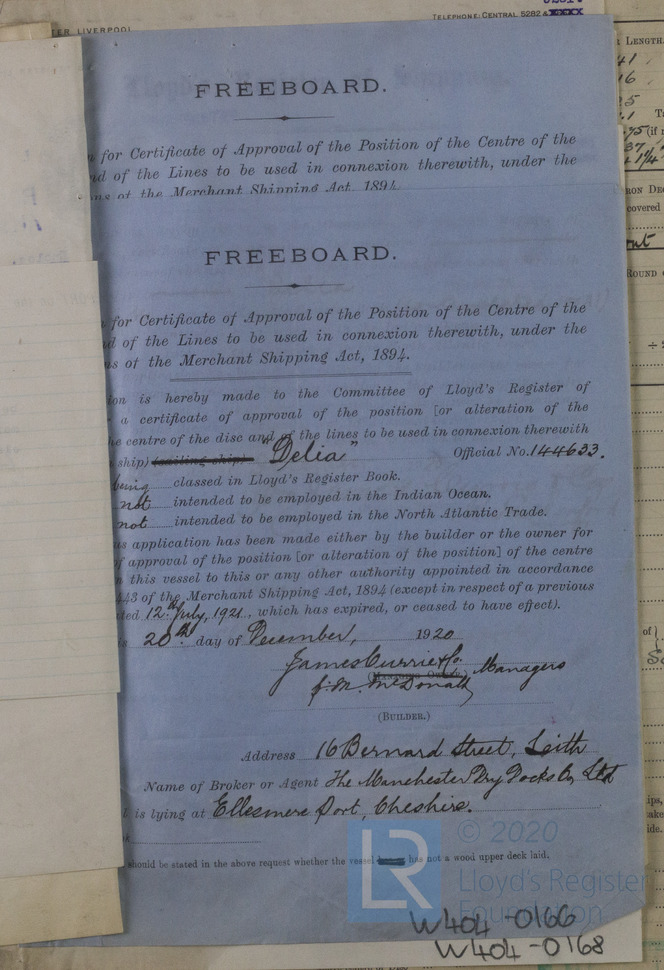 ER, LIVERPOOL
TELEPHONE: CENTRAL 5282 &
FREEBOARD.
for Certificate of Approval of the Position of the Centre of the
of the Lines to be used in connexion therewith, under the
of the Merchant Shipping Act, 1894.
FREEBOARD.
for Certificate of Approval of the Position of the Centre of the
of the Lines to be used in connexion therewith, under the
ns of the Merchant Shipping Act, 1894.
ion is hereby made to the Committee of Lloyd's Register of
a certificate of approval of the position [or alteration of the
he centre of the disc and of the lines to be used in connexion therewith
ship) sailing ship "Delia" Official No. 144633.
being classed in Lloyd's Register Book.
not intended to be employed in the Indian Ocean.
not intended to be employed in the North Atlantic Trade.
us application has been made either by the builder or the owner for
of approval of the position [or alteration of the position] of the centre
n this vessel to this or any other authority appointed in accordance
443 of the Merchant Shipping Act, 1894 (except in respect of a previous
ted 12th July, 1921, which has expired, or ceased to have effect).
s 20th day of December, 1920
James Currie & Co. Managers
J. M. McDonald
(BUILDER.)
Address 16 Bernard Street, Leith
Name of Broker or Agent The Manchester Dry Docks Co. Ltd
is lying at Ellesmere Port, Cheshire.
should be stated in the above request whether the vessel has not a wood upper deck laid.
LR
© 2020
Lloyd's Register
Foundation
W404-0166
W404-0168
LENGTH
41
16
RON DEC
covered
out
ROUND
of